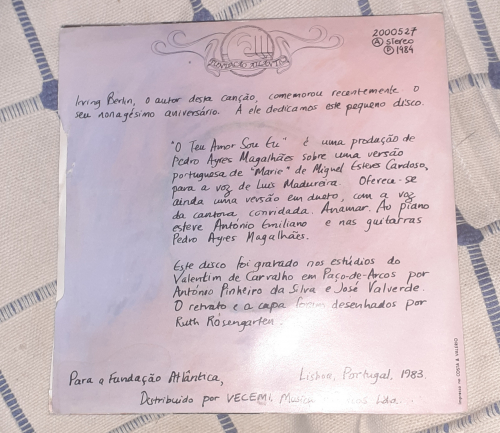 2000527
FUNDAÇÃO ATLÂNTICA
A stereo
P 1984
Irving Berlin, o autor desta canção, comemorou recentemente o
seu nonagésimo aniversário. A ele dedicamos este pequeno disco.
"O Teu Amor Sou Eu" é uma produção de
Pedro Ayres Magalhães sobre uma versão
portuguesa de "Marie" de Miguel Esteves Cardoso,
para a voz de Luis Madureira. Ofereu-se
ainda uma versão em dueto, com a voz
da cantora convidada. Anamar. Ao piano
esteve António Emiliano e nas guitarras
Pedro Ayres Magalhães.
Este disco foi gravado nos estúdios do
Valentim de Carvalho em Paço-de-Arcos por
António Pinheiro da Silva e José Valverde.
O retrato e a capa foram desenhados por
Ruth Rosengarten.
Para a Fundação Atlântica, Lisboa, Portugal, 1983.
Distribuido por VECEMI. Lda.